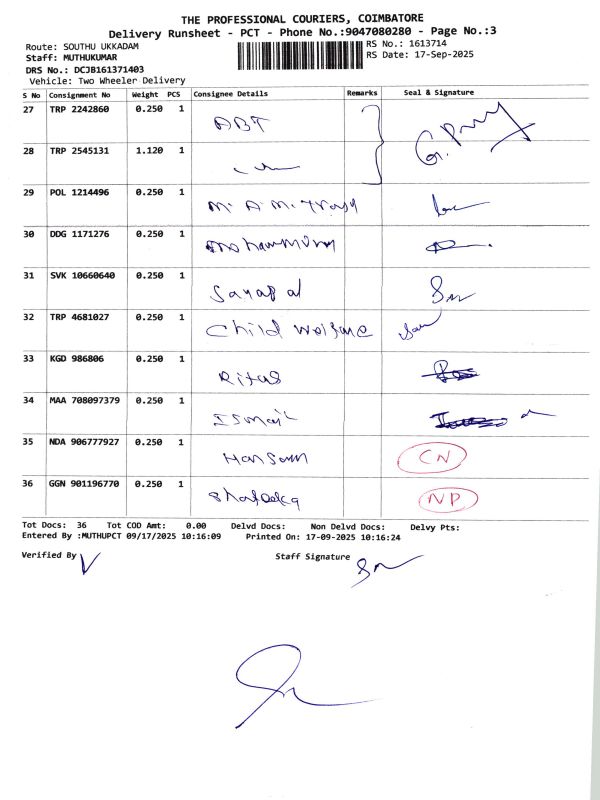 THE PROFESSIONAL COURIERS, COIMBATORE
Delivery Runsheet - PCT - Phone No.:9047080280 - Page No.:3
Route: SOUTHU UKKADAM
RS No.: 1613714
Staff: MUTHUKUMAR
RS Date: 17-Sep-2025
DRS No.: DCJB161371403
Vehicle: Two Wheeler Delivery
S No Consignment No Weight PCS Consignee Details Remarks Seal & Signature
27 TRP 2242860 0.250 1 ABT
28 TRP 2545131 1.120 1
29 POL 1214496 0.250 1 M. A. M.
30 DDG 1171276 0.250 1
31 SVK 10660640 0.250 1
32 TRP 4681027 0.250 1 Child Welfare
33 KGD 986806 0.250 1 Ritas
34 MAA 708097379 0.250 1 Ismail
35 NDA 906777927 0.250 1 CN
36 GGN 901196770 0.250 1 NP
Tot Docs: 36 Tot COD Amt: 0.00 Delvd Docs: Non Delvd Docs: Delvy Pts:
Entered By :MUTHUPCT 09/17/2025 10:16:09 Printed On: 17-09-2025 10:16:24
Verified By Staff Signature